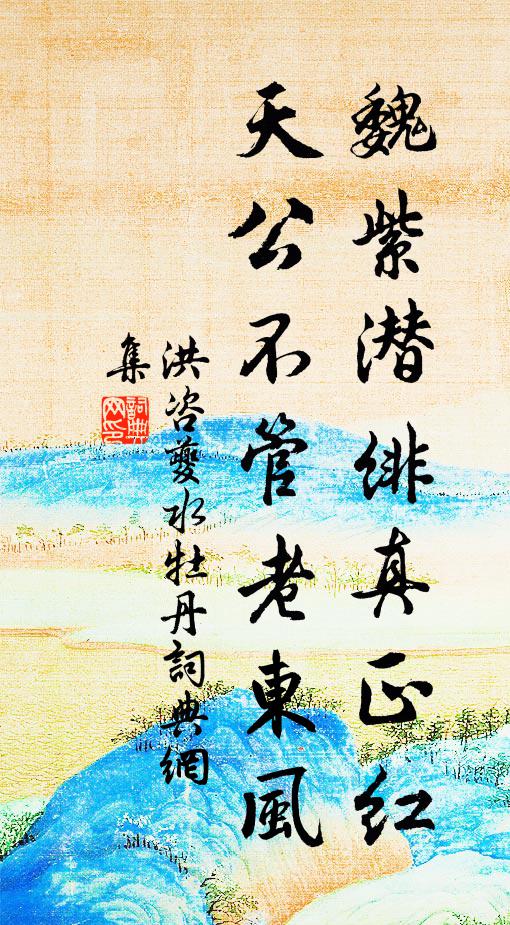 魏紫潜緋真正紅
天公不管老東風
洪咨夔水牡丹詞典網
集
詞典網印